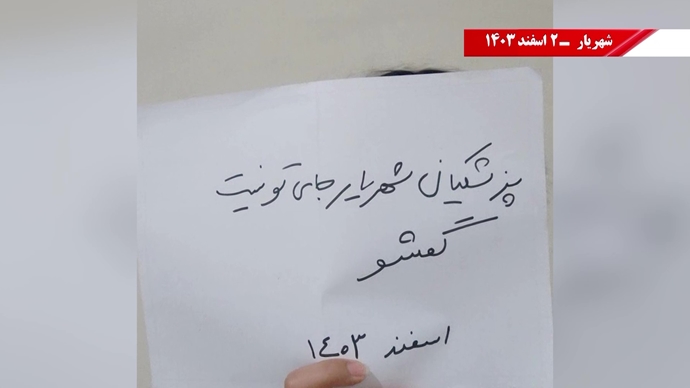 شهریار - ۲ اسفند ۱۴۰۳
پزشکیان شهریار جای تو نیست
گمشو
اسفند ۱۴۰۳